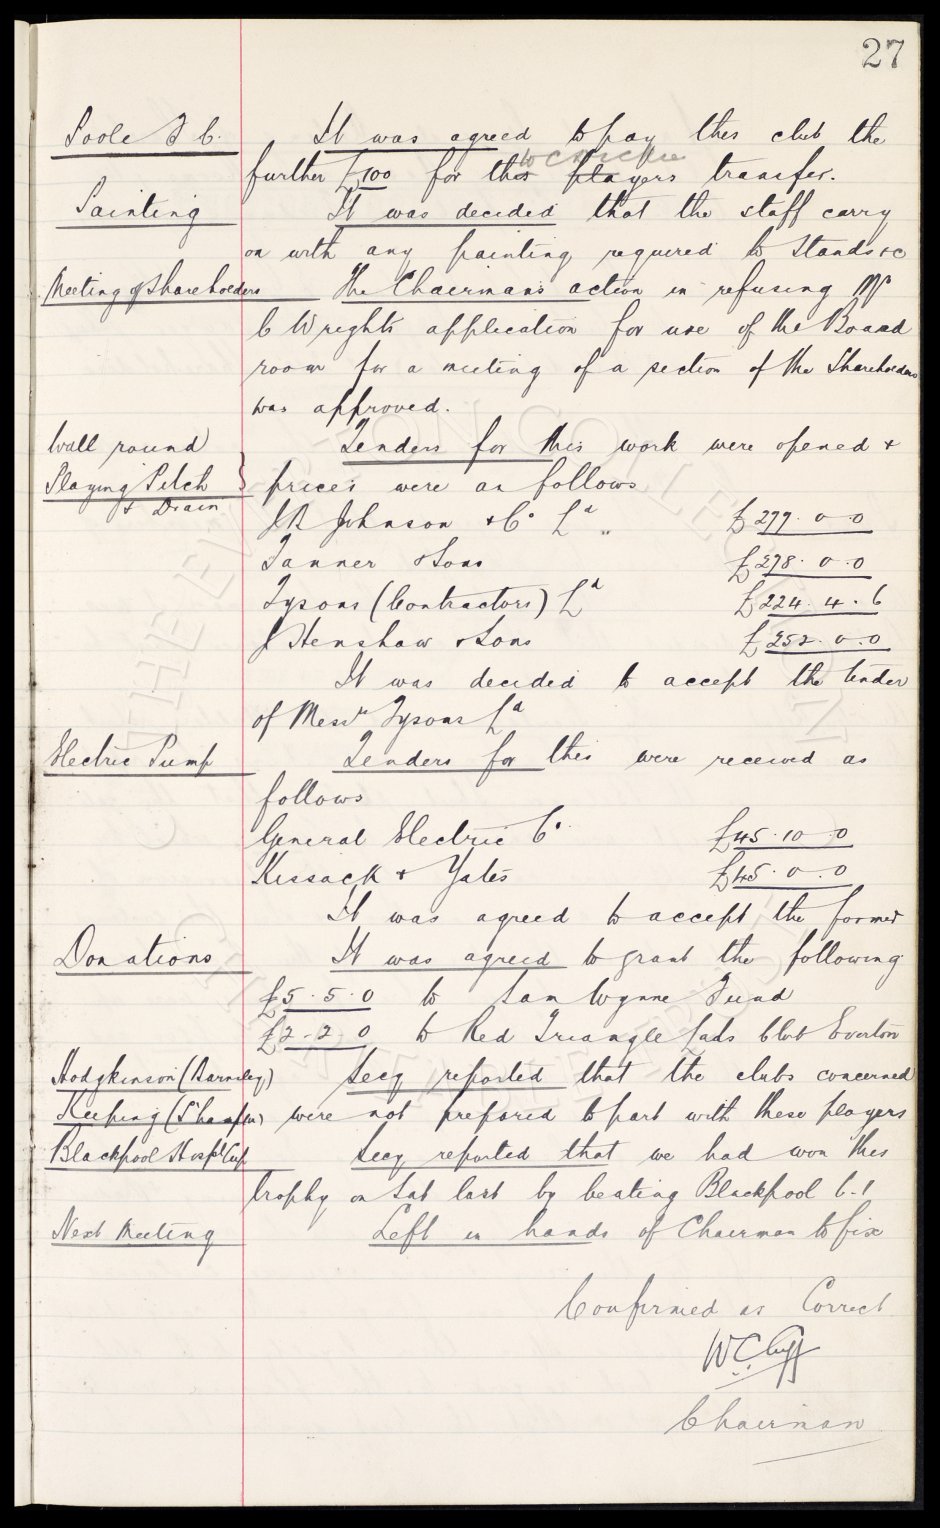 27
Poole F C.
It was agreed to pay this club the
McMickie
further £100 for this players transfer.
Painting
It was decided that the staff carry
on with any painting required to stands &c
Meeting of Shareholders
The Chairmans action in refusing Mr
C Wrights application for use of the Board
room for a meeting of a section of the Shareholders
was approved.
Wall round
Playing Pitch
& Drain
Tenders for this work were opened &
prices were as follows
J B Johnson & Co Ld „ £277. 0. 0
Tanner & Sons £278. 0. 0
Tysons (Contractors) Ld £224. 4. 6
J Henshaw & Sons £252. 0. 0
It was decided to accept the tender
of Messrs Tysons Ld
Electric Pump
Tenders for this were received as
follows
General Electric Co. £45. 10. 0
Kissack & Yates £45. 0. 0
It was agreed to accept the former
Donations
It was agreed to grant the following
£5. 5. 0 to Sam Wynne Fund
£2-2 0 to Red Triangle Lads Club Everton
Hodgkinson (Barnsley)
Keeping (S'hampton)
Secy reported that the clubs concerned
were not prepared to part with these players
Blackpool Hospl Cup
Secy reported that we had won this
trophy on Sat last by beating Blackpool 6-1
Next Meeting
Left in hands of Chairman to fix
Confirmed as Correct
W C Cuff
Chairman
THE EVERTON COLLECTION
CHARITABLE TRUST